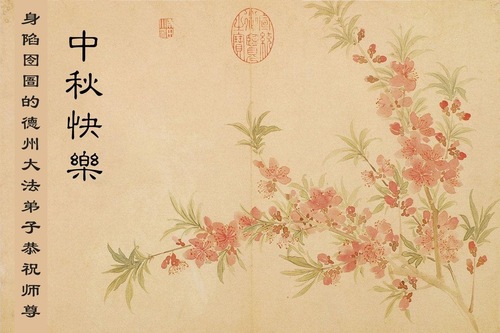 中秋快樂
身陷囹圄的德州大法弟子恭祝师尊